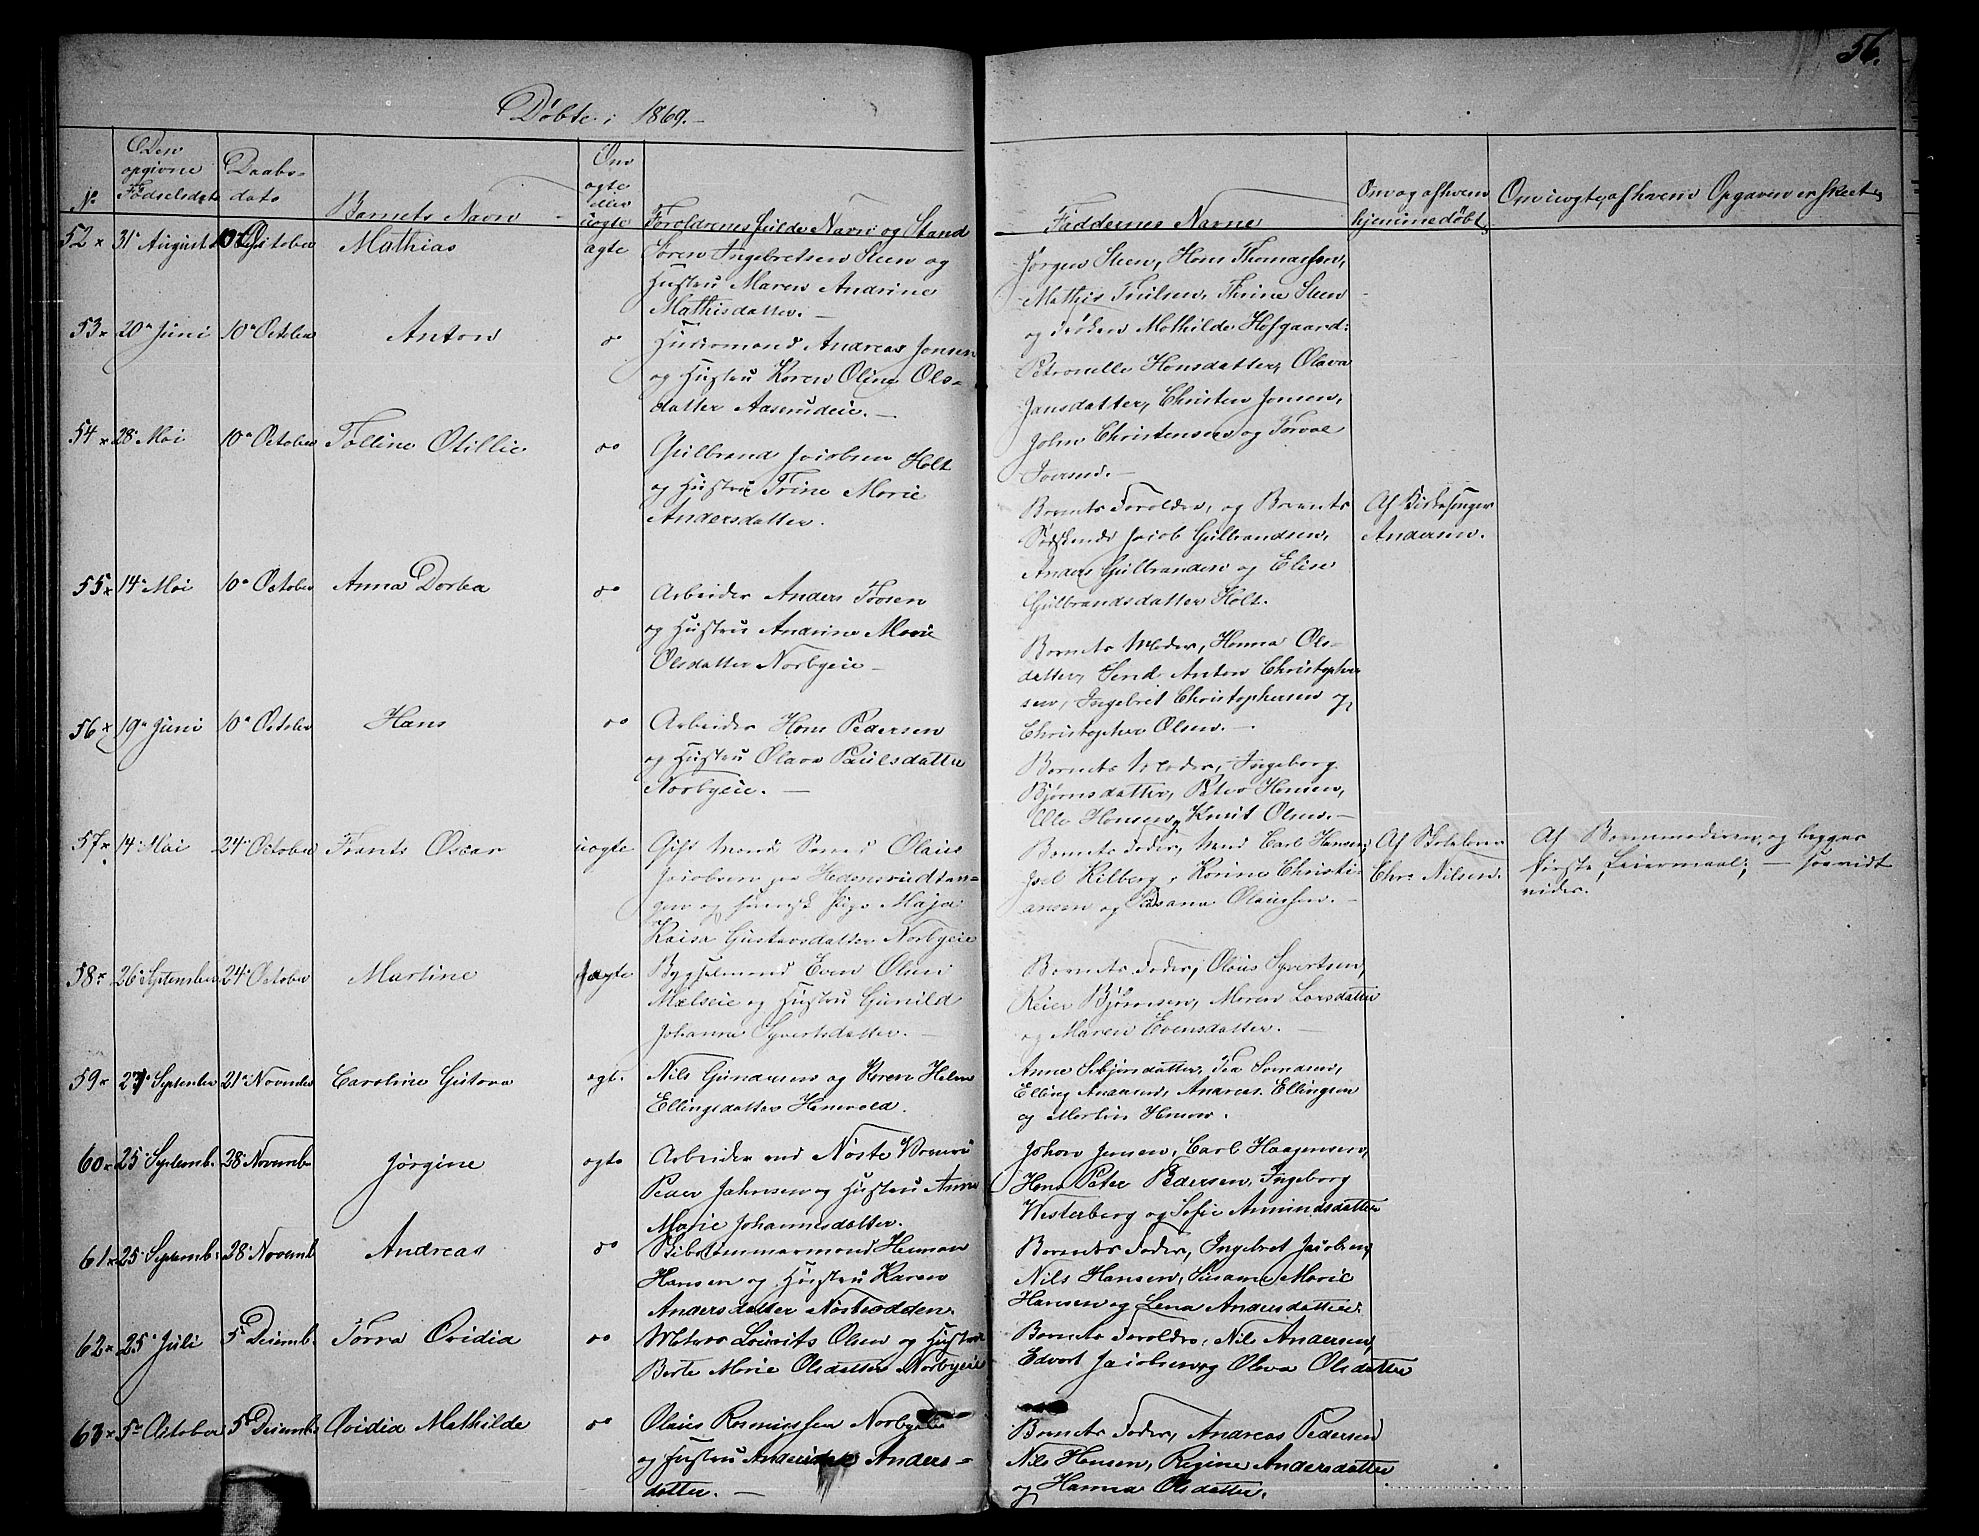 56.
Döbte i 1869.
No
Den opgivne Fødselsdato
Daabsdato
Barnets Navn
Om ægte eller uægte
Forældrenes fulde Navn og Stand
Faddernes Navne
Om og af hvem hjemmedøbt
Om uægte, af hvem Opgaven er skeet
52 31 August October Mathias ægte Søren Ingebretsen Steen og
Hustru Maren Andrine
Mathisdatter.
Jørgen Steen, Hans Thomassen,
Mathis Trulsen, Thrine Steen
og Frøken Mathilde Hofgaard.
53 20 Juni 10 October Anton do Huusmand Andreas Jonsen
og Hustru Karen Oline Ols-
datter Aaserudeie.
Petronelle Hansdatter, Olava
Jansdatter, Christen Jensen,
John Christensen og Torval
Iversen.
54 28 Mai 10 October Tolline Otillie do Gulbrand Jacobsen Holt
og Hustru Trine Marie
Andersdatter.
Barnets Forældre, og Barnets
Sødskende Jacob Gulbrandsen,
Anders Gulbrandsen og Elise
Gulbrandsdatter Holt.
Af Kirkesanger
Andersen.
55 14 Mai 10 October Anna Dortea do Arbeider Anders Toosen
og Hustru Andrine Marie
Olsdatter Norbyeie
Barnets Moder, Hanna Ols-
datter, Send Anton Christopher-
sen, Ingebret Christophersen og
Christopher Olsen.
56 19 Juni 10 October Hans do Arbeider Hans Pedersen
og Hustru Olava Paulsdatter
Norbyeie.
Barnets Moder, Ingeborg
Bjørnsdatter, Peter Hansen,
Ole Hansen, Knut Olsen.
57 14 Mai 24 October Frants Oscar uægte Gift Mand Olaus
Jacobsen paa Hedensrudtan-
gen og svensk Pige Maja
Kaisa Gustavsdatter Norbyeie
Barnets Fader, Carl Hansen,
Kilberg, Karine Christi-
ansen og Susana Olaussen.
Af Skolelærer
Chr. Nilsen.
Af Barnemoderen, og begges
første Leiermaal; saavidt
vides.
58 26 September 24 October Martine ægte Bygselmand Even Olsen
Mælseie og Hustru Gunild
Johanna Syvertsdatter.
Barnets Fader, Olaus Syvertsen,
Reier Bjørnsen, Maren Larsdatter
og Maren Evensdatter.
59 September 21 November Caroline Gustava ægt. Nils Gundersen og Karen Helene
Ellingsdatter Hanevold.
Anne
Elling Andersen, Andreas Ellingsen
og Martin Hansen.
60 25 Septemb. 28 Novemb. Jørgine ægte Arbeider ved Næste
Peder Johnsen og Hustru Anne
Marie Johannesdatter.
Johan Jensen, Carl Haagensen,
Hans Peter Pedersen, Ingeborg
Westerberg og Sofie Amundsdatter
61 25 Septemb. 28 Novemb. Andreas do Skibstømmermand Herman
Hansen og Hustru Karen
Andersdatter Næsteodden.
Barnets Fader, Ingebret Jacobsen,
Nils Hansen, Susanne Marie
Hansen og Lena Andersdatter.
62 25 Juli 5 Decemb. Torra Ovidia do Matros Lourits Olsen og Hustru
Berte Marie Olsdatter Norbyeie
Barnets Forældre, Nils Andersen,
Edvart Jacobsen og Olava Olsdatter
63 5 October 5 Decemb. Ovidia Mathilde do Olaus Rasmussen Norbyeie
og Hustru Anders-
datter.
Barnets Fader, Andreas Pedersen
Nils Hansen, Regine Andersdatter
og Hanna Olsdatter.